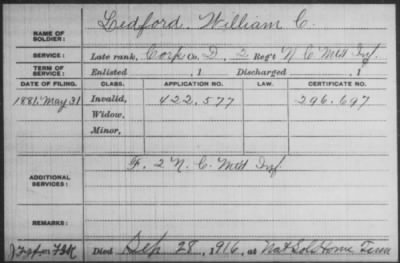 NAME OF SOLDIER: Ledford, William C.
SERVICE: Late rank, Corp Co. D, 2 Reg't N C Mtd Inf.
TERM OF SERVICE: Enlisted , 1 Discharged , 1
DATE OF FILING. CLASS. APPLICATION NO. LAW. CERTIFICATE NO.
1881, May 31 Invalid, 422.577 296.697
Widow,
Minor,
ADDITIONAL SERVICES: F. 2 N. C. Mtd Inf.
REMARKS:
Died Sep 28, 1916, at Nat Sold Home Tenn